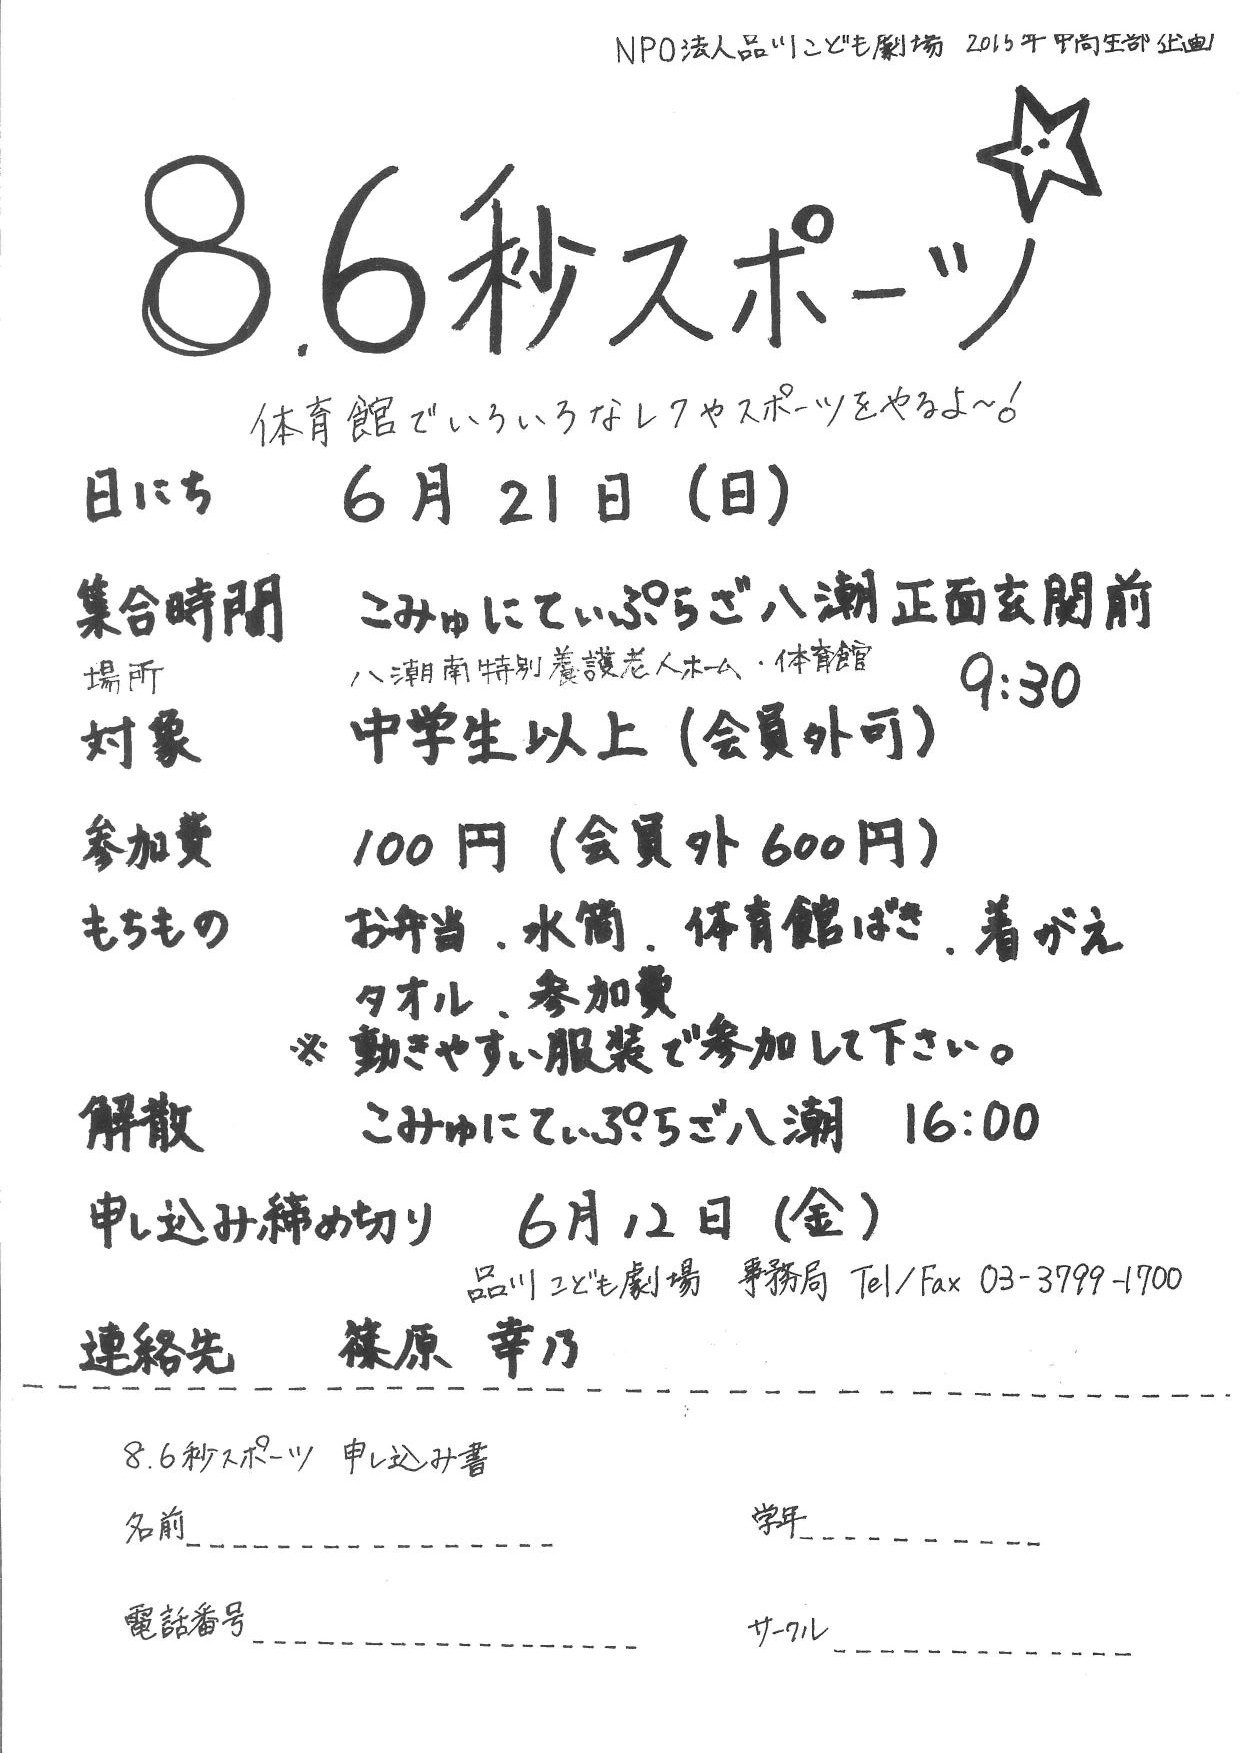 NPO法人品川こども劇場 2015年 中高生部 企画
8.6秒スポーツ
体育館でいろいろなレクやスポーツをやるよ～!
日にち 6月21日(日)
集合時間 こみゅにてぃぷらざ八潮正面玄関前
場所 八潮南特別養護老人ホーム・体育館 9:30
対象 中学生以上(会員外可)
参加費 100円(会員外600円)
もちもの お弁当、水筒、体育館ばき、着がえ
タオル、参加費
※動きやすい服装で参加して下さい。
解散 こみゅにてぃぷらざ八潮 16:00
申し込み締め切り 6月12日(金)
品川こども劇場 事務局 Tel/Fax 03-3799-1700
連絡先 篠原 幸乃
8.6秒スポーツ 申し込み書
名前 学年
電話番号 サークル